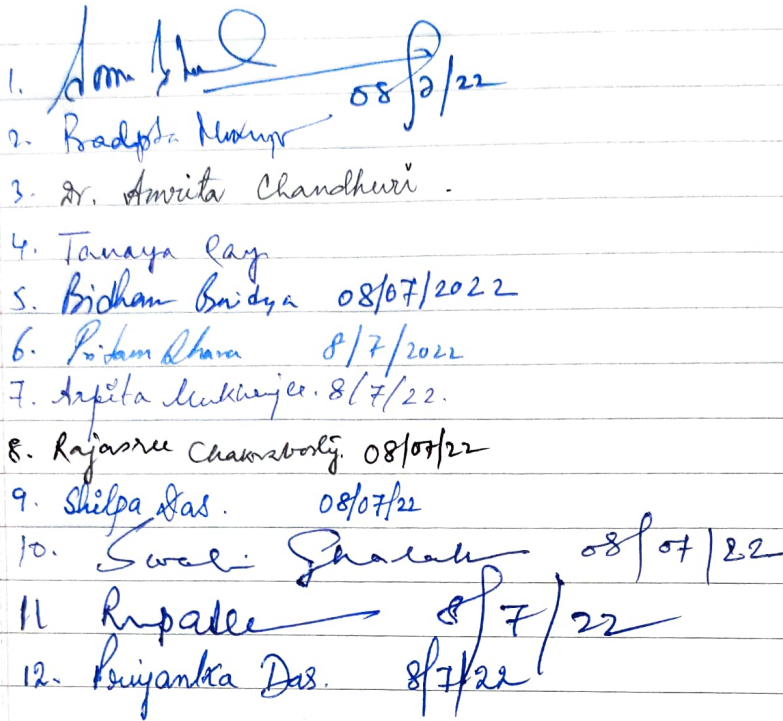 1. 08/7/22
2.
3. Dr. Amrita Chaudhuri.
4. Tanaya Ray
5. Bidhan Baidya 08/07/2022
6. Pritam Dhara 8/7/2022
7. Arpita Mukherjee. 8/7/22.
8. Rajasree Chakraborty. 08/07/22
9. Shilpa Das. 08/07/22
10. Swati Ghatak 08/07/22
11 8/7/22
12. Priyanka Das. 8/7/22